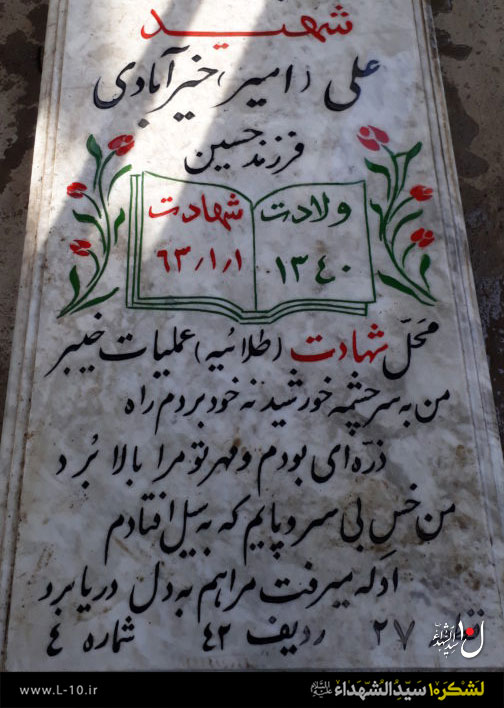 شهید
علی (امیر) خیرآبادی
فرزند حسین
ولادت
۱۳۴۰
شهادت
۶۳/۱/۱
محلّ شهادت (طلائیه) عملیات خیبر
من به سرچشمه خورشید نه خود بردم راه
ذرّه‌ای بودم و مهر تو مرا بالا بُرد
من خسِ بی سر و پایم که به سیل افتادم
او که میرفت مرا هم به دل دریا برد
۲۷ ردیف ۴۲ شماره ۴
سیدالشهداء
www.L-10.ir
لشکر۱۰ سیّدالشهداء